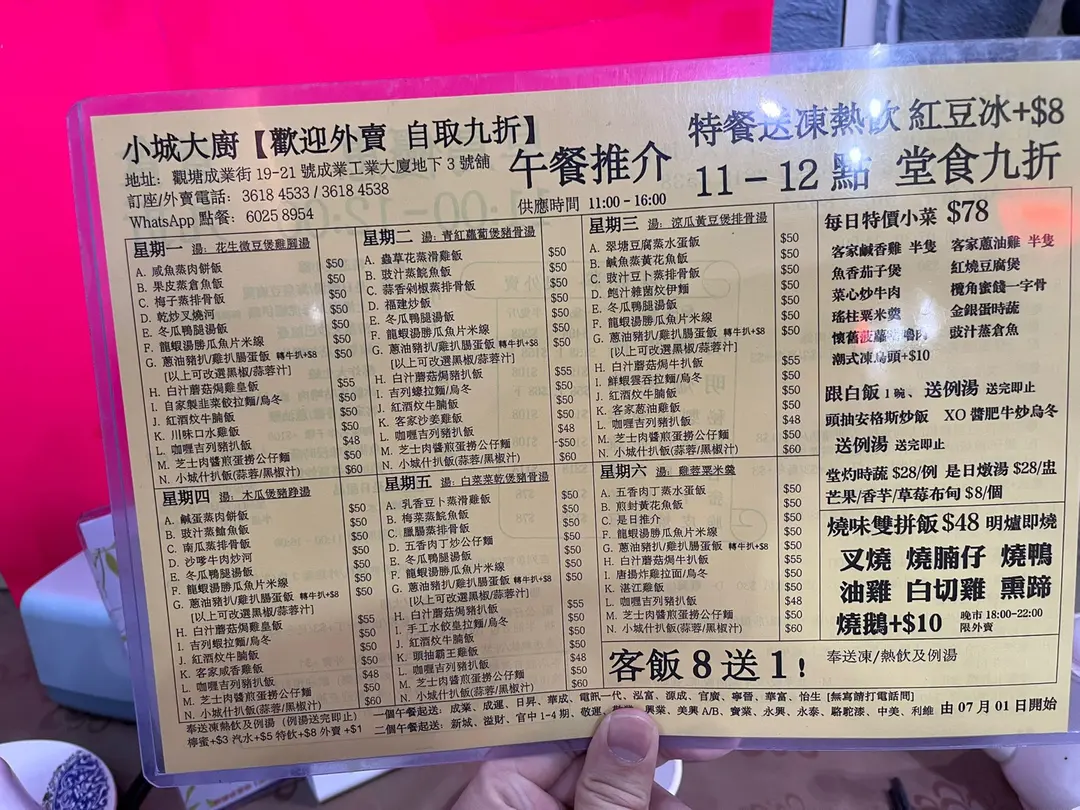 小城大廚【歡迎外賣 自取九折】
地址: 觀塘成業街 19-21 號成業工業大廈地下 3 號舖
訂座/外賣電話: 3618 4533 / 3618 4538
WhatsApp 點餐: 6025 8954
午餐推介
供應時間 11:00 - 16:00
特餐送凍熱飲 紅豆冰+$8
11－12 點 堂食九折
星期一 湯: 花生微豆煲雞腳湯
A. 咸魚蒸肉餅飯 $50
B. 果皮蒸倉魚飯 $50
C. 梅子蒸排骨飯 $50
D. 乾炒叉燒河 $50
E. 冬瓜鴨腿湯飯 $50
F. 龍蝦湯勝瓜魚片米線 $50
G. 蔥油豬扒/雞扒腸蛋飯 轉牛扒+$8 $50
[以上可改選黑椒/蒜蓉汁]
H. 白汁蘑菇焗雞皇飯 $55
I. 自家製韭菜餃拉麵/烏冬 $50
J. 紅酒炆牛腩飯 $50
K. 川味口水雞飯 $50
L. 咖喱吉列豬扒飯 $48
M. 芝士肉醬煎蛋撈公仔麵 $50
N. 小城什扒飯(蒜蓉/黑椒汁) $60
星期二 湯: 青紅蘿蔔煲豬骨湯
A. 蟲草花蒸滑雞飯 $50
B. 豉汁蒸鯇魚飯 $50
C. 蒜香剁椒蒸排骨飯 $50
D. 福建炒飯 $50
E. 冬瓜鴨腿湯飯 $50
F. 龍蝦湯勝瓜魚片米線 $50
G. 蔥油豬扒/雞扒腸蛋飯 轉牛扒+$8 $50
[以上可改選黑椒/蒜蓉汁]
H. 白汁蘑菇焗豬扒飯 $55
I. 吉列蠔拉麵/烏冬 $50
J. 紅酒炆牛腩飯 $50
K. 客家沙姜雞飯 $50
L. 咖喱吉列豬扒飯 $48
M. 芝士肉醬煎蛋撈公仔麵 $50
N. 小城什扒飯(蒜蓉/黑椒汁) $60
星期三 湯: 涼瓜黃豆煲排骨湯
A. 翠塘豆腐蒸水蛋飯 $50
B. 鹹魚蒸黃花魚飯 $50
C. 豉汁豆卜蒸排骨飯 $50
D. 鮑汁雜菌炆伊麵 $50
E. 冬瓜鴨腿湯飯 $50
F. 龍蝦湯勝瓜魚片米線 $50
G. 蔥油豬扒/雞扒腸蛋飯 轉牛扒+$8 $50
[以上可改選黑椒/蒜蓉汁]
H. 白汁蘑菇焗牛扒飯 $55
I. 鮮蝦雲吞拉麵/烏冬 $50
J. 紅酒炆牛腩飯 $50
K. 客家蔥油雞飯 $50
L. 咖喱吉列豬扒飯 $48
M. 芝士肉醬煎蛋撈公仔麵 $50
N. 小城什扒飯(蒜蓉/黑椒汁) $60
每日特價小菜 $78
客家鹹香雞 半隻 客家蔥油雞 半隻
魚香茄子煲 紅燒豆腐煲
菜心炒牛肉 欖角蜜餞一字骨
瑤柱粟米羹 金銀蛋時蔬
懷舊菠蘿咕嚕肉 豉汁蒸倉魚
潮式凍烏頭+$10
跟白飯 1 碗、送例湯 送完即止
頭抽安格斯炒飯 XO 醬肥牛炒烏冬
送例湯 送完即止
堂灼時蔬 $28/例 是日燉湯 $28/盅
芒果/香芋/草莓布甸 $8/個
星期四 湯: 木瓜煲豬踭湯
A. 鹹蛋蒸肉餅飯 $50
B. 豉汁蒸鱠魚飯 $50
C. 南瓜蒸排骨飯 $50
D. 沙嗲牛肉炒河 $50
E. 冬瓜鴨腿湯飯 $50
F. 龍蝦湯勝瓜魚片米線 $50
G. 蔥油豬扒/雞扒腸蛋飯 轉牛扒+$8 $50
[以上可改選黑椒/蒜蓉汁]
H. 白汁蘑菇焗雞皇飯 $55
I. 吉列蝦拉麵/烏冬 $50
J. 紅酒炆牛腩飯 $50
K. 客家咸香雞飯 $50
L. 咖喱吉列豬扒飯 $48
M. 芝士肉醬煎蛋撈公仔麵 $50
N. 小城什扒飯(蒜蓉/黑椒汁) $60
星期五 湯: 白菜菜乾煲豬骨湯
A. 乳香豆卜蒸滑雞飯 $50
B. 梅菜蒸鯇魚飯 $50
C. 臘腸蒸排骨飯 $50
D. 五香肉丁炒公仔麵 $50
E. 冬瓜鴨腿湯飯 $50
F. 龍蝦湯勝瓜魚片米線 $50
G. 蔥油豬扒/雞扒腸蛋飯 轉牛扒+$8 $50
[以上可改選黑椒/蒜蓉汁]
H. 白汁蘑菇焗豬扒飯 $55
I. 手工水餃拉麵/烏冬 $50
J. 紅酒炆牛腩飯 $50
K. 頭抽霸王雞飯 $50
L. 咖喱吉列豬扒飯 $48
M. 芝士肉醬煎蛋撈公仔麵 $50
N. 小城什扒飯(蒜蓉/黑椒汁) $60
星期六 湯: 雞蓉粟米羹
A. 五香肉丁蒸水蛋飯 $50
B. 煎封黃花魚飯 $50
C. 是日推介 $50
F. 龍蝦湯勝瓜魚片米線 $50
G. 蔥油豬扒/雞扒腸蛋飯 轉牛扒+$8 $50
[以上可改選黑椒/蒜蓉汁]
H. 白汁蘑菇焗牛扒飯 $55
I. 唐揚炸雞拉麵/烏冬 $50
K. 湛江雞飯 $50
L. 咖喱吉列豬扒飯 $48
M. 芝士肉醬煎蛋撈公仔麵 $50
N. 小城什扒飯(蒜蓉/黑椒汁) $60
燒味雙拼飯 $48 明爐即燒
叉燒 燒腩仔 燒鴨
油雞 白切雞 熏蹄
燒鵝+$10 晚市 18:00-22:00
限外賣
客飯 8 送 1! 奉送凍/熱飲及例湯
奉送凍熱飲及例湯 (例湯送完即止)
檸蜜+$3 汽水+$5 特飲+$8 外賣 +$1
一個午餐起送: 成業、成運、日昇、華成、電訊一代、泓富、源成、官廣、寧晉、華富、怡生 [無寫請打電話問]
二個午餐起送: 新城、溢財、官中 1-4 期、敬運、興業、美興 A/B、寶業、永興、永泰、駱駝漆、中美、利維 由 07 月 01 日開始